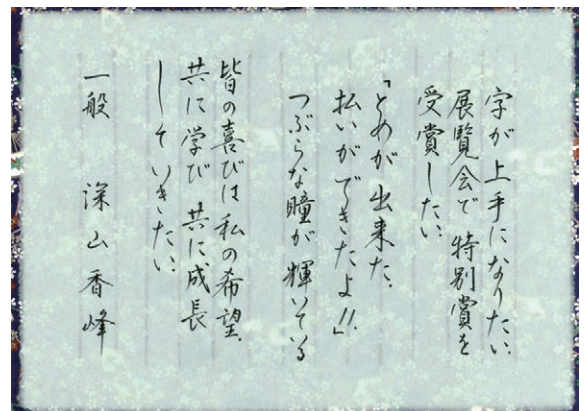 字が上手になりたい、
展覧会で特別賞を
受賞したい、
「とめが出来た、
払いができたよ!!」
つぶらな瞳が輝いている
皆の喜びは私の希望、
共に学び 共に成長
していきたい、
一般 深山香峰